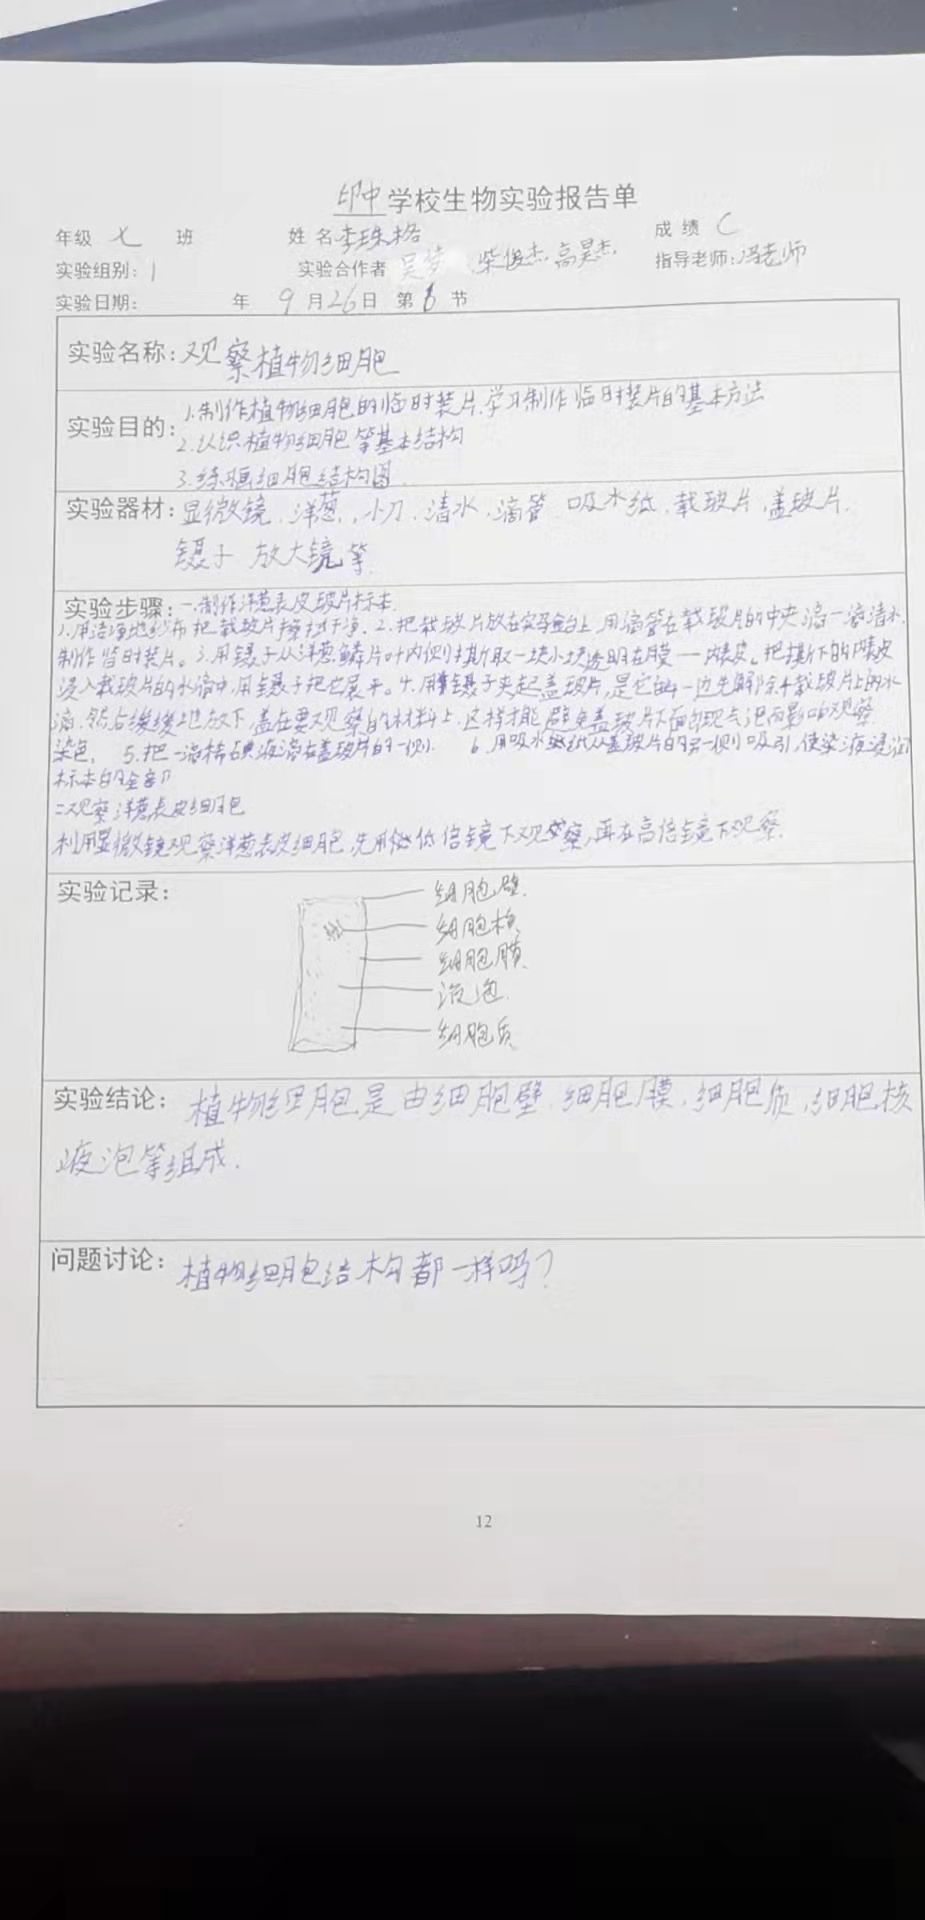 印中学校生物实验报告单
年级 七 班 姓名 李珠格 成绩 C
实验组别: 1 实验合作者 吴 柴俊杰 高昊杰 指导老师: 冯老师
实验日期: 年 9月26日 第 节
实验名称: 观察植物细胞
实验目的: 1.制作植物细胞的临时装片,学习制作临时装片的基本方法
2.认识植物细胞等基本结构
3.练画细胞结构图
实验器材: 显微镜、洋葱、小刀、清水、滴管、吸水纸、载玻片、盖玻片、
镊子 放大镜等
实验步骤: 一.制作洋葱表皮玻片标本
1.用洁净地纱布把载玻片擦拭干净. 2.把载玻片放在实验台上,用滴管在载玻片的中央滴一滴清水,
制作 时装片。3.用镊子从洋葱鳞片叶内侧撕取一块小块透明 膜——内表皮。把撕下的内表皮
浸入载玻片的水滴中,用镊子把它展平。4.用镊子夹起盖玻片,是它的一边先 载玻片上的水
滴,然后缓缓地放下,盖在要观察的材料上.这样才能避免盖玻片下面出现气泡而影响观察
染色. 5.把一滴稀碘液滴在盖玻片的一侧. 6.用吸水 纸从盖玻片的另一侧吸引,使染液浸润
标本的全部
二观察洋葱表皮细胞
利用显微镜观察洋葱表皮细胞,先用低倍镜下观察,再在高倍镜下观察.
实验记录:
细胞壁
细胞核
细胞膜
液泡
细胞质
实验结论: 植物细胞是由细胞壁、细胞膜、细胞质、细胞核
液泡等组成.
问题讨论: 植物细胞结构都一样吗?
12